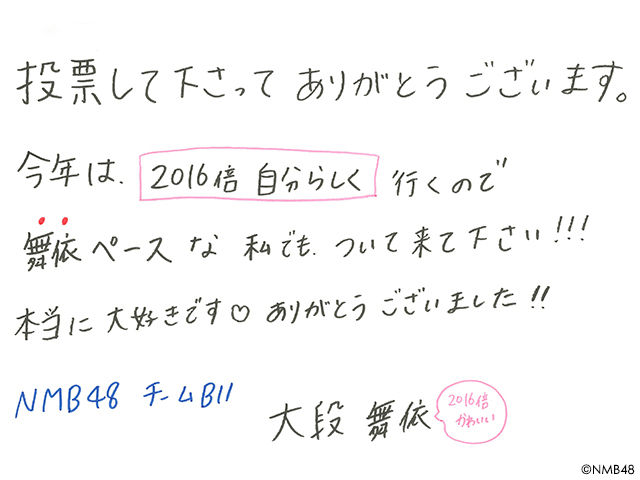 投票して下さって ありがとう ございます。
今年は、2016倍 自分らしく 行くので
舞依ペース な 私でも、ついて来て下さい!!!
本当に 大好きです♡ ありがとう ございました!!
NMB48 チームBII
大段 舞依
2016倍
かわいい
©NMB48